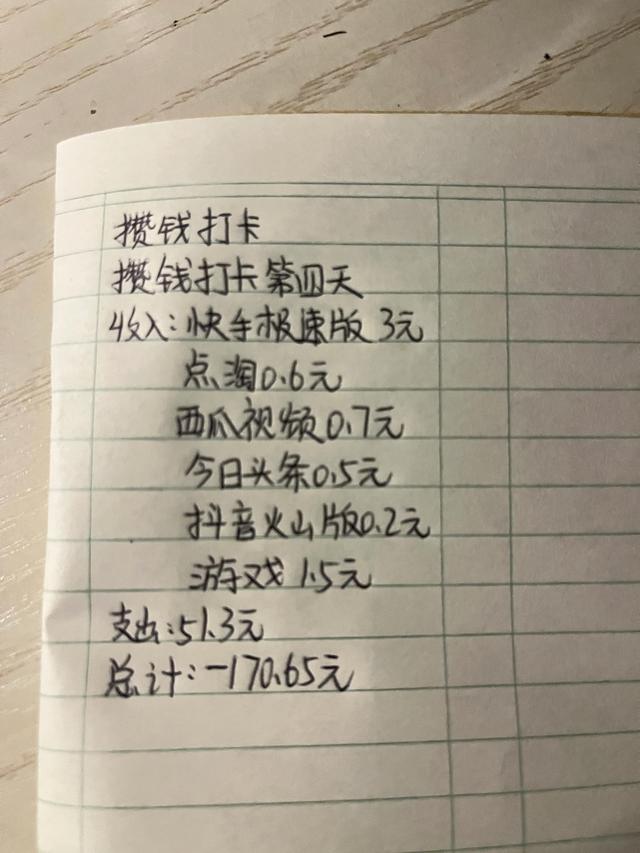 攒钱打卡
攒钱打卡第四天
收入:快手极速版 3元
点淘0.6元
西瓜视频0.7元
今日头条0.5元
抖音火山版0.2元
游戏 1.5元
支出:51.3元
总计:-170.65元